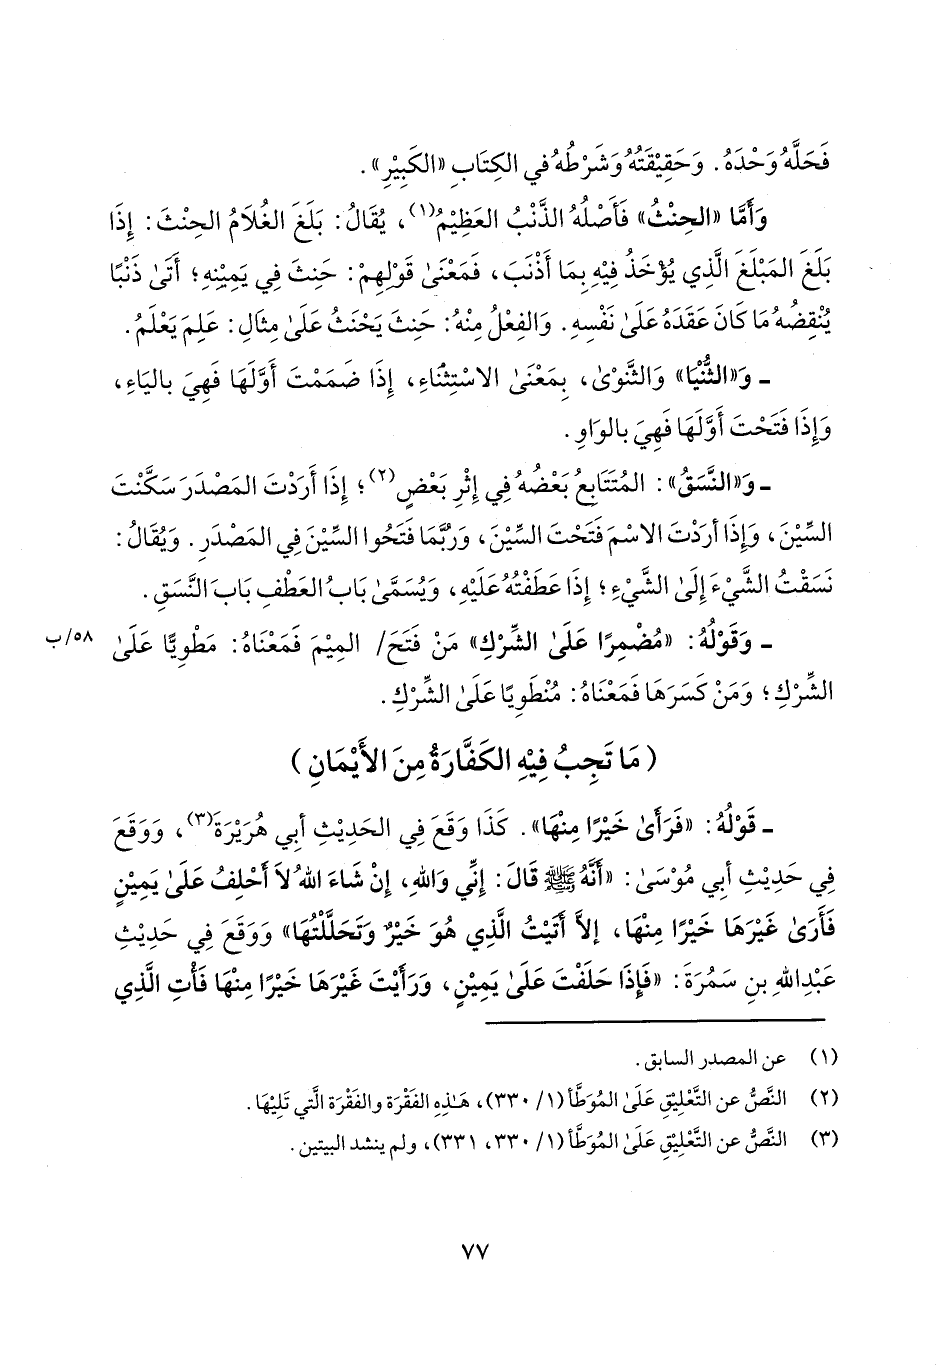 فَحَلَّهُ وَحْدَهُ. وَحَقِيْقَتُهُ وَشَرْطُهُ في الكِتَابِ «الكَبِيْرِ».
وَأَمَّا «الحِنْثُ» فَأَصْلُهُ الذَّنْبُ العَظِيْمُ(١)، يُقَالُ: بَلَغَ الغُلَامُ الحِنْثَ: إِذَا
بَلَغَ المَبْلَغَ الَّذِي يُؤْخَذُ فِيْهِ بِمَا أَذْنَبَ، فَمَعْنَىٰ قَوْلِهِمْ: حَنِثَ فِي يَمِيْنِهِ؛ أَتَىٰ ذَنْبًا
يُنْقِضُهُ مَا كَانَ عَقَدَهُ عَلَىٰ نَفْسِهِ. وَالفِعْلُ مِنْهُ: حَنِثَ يَحْنَثُ عَلَىٰ مِثَالِ: عَلِمَ يَعْلَمُ.
ـ وَ«الثُّنْيَا» وَالثَّنْوَىٰ، بِمَعْنَىٰ الاسْتِثْنَاءِ، إِذَا ضَمَمْتَ أَوَّلَهَا فَهِيَ بالياءِ،
وَإِذَا فَتَحْتَ أَوَّلَهَا فَهِيَ بالوَاوِ.
ـ وَ«النَّسَقُ»: المُتَتَابِعُ بَعْضُهُ فِي إِثْرِ بَعْضٍ(٢)؛ إِذَا أَرَدْتَ المَصْدَرَ سَكَّنْتَ
السِّيْنَ، وَإِذَا أرَدْتَ الاسْمَ فَتَحْتَ السِّيْنَ، وَرُبَّمَا فَتَحُوا السِّيْنَ فِي المَصْدَرِ. وَيُقَالُ:
نَسَقْتُ الشَّيْءَ إِلَىٰ الشَّيْءِ؛ إِذَا عَطَفْتُهُ عَلَيْهِ، وَيُسَمَّى بَابُ العَطْفِ بَابَ النَّسَقِ.
ـ وَقَوْلُهُ: «مُضْمِرًا عَلَىٰ الشِّرْكِ» مَنْ فَتَحَ/ المِيْمَ فَمَعْنَاهُ: مَطْوِيًّا عَلَىٰ ٥٨/ب
الشِّرْكِ؛ وَمَنْ كَسَرَهَا فَمَعْنَاهُ: مُنْطَوِيًا عَلَىٰ الشِّرْكِ.
(مَا تَجِبُ فِيْهِ الكَفَّارَةُ مِنَ الأَيْمَانِ)
ـ قَوْلُهُ: «فَرَأَىٰ خَيْرًا مِنْهَا». كَذَا وَقَعَ فِي الحَدِيْثِ أبي هُرَيْرَةَ(٣)، وَوَقَعَ
فِي حَدِيْثِ أبي مُوْسَىٰ: «أَنَّهُ ﷺ قَالَ: إِنِّي وَاللهِ، إِنْ شَاءَ اللهُ لاَ أَحْلِفُ عَلَىٰ يَمِيْنٍ
فَأَرَىٰ غَيْرَهَا خَيْرًا مِنْهَا، إلاَّ أَتَيْتُ الَّذِي هُوَ خَيْرٌ وَتَحَلَّلْتُهَا» وَوَقَعَ فِي حَدِيْثِ
عَبْدِاللهِ بنِ سَمُرَةَ: «فَإِذَا حَلَفْتَ عَلَىٰ يَمِيْنٍ، وَرَأَيْتَ غَيْرَهَا خَيْرًا مِنْهَا فَأْتِ الَّذِي
(١) عن المصدر السابق.
(٢) النَّصُّ عن التَّعْلِيْقِ عَلَىٰ المُوَطَّأ (١/ ٣٣٠)، هَـٰذِهِ الفَقْرَة والفَقْرَة الَّتي تَلِيْهَا.
(٣) النَّصُّ عن التَّعْلِيْقِ عَلَىٰ المُوَطَّأ (١/ ٣٣٠، ٣٣١)، ولم ينشد البيتين.
٧٧